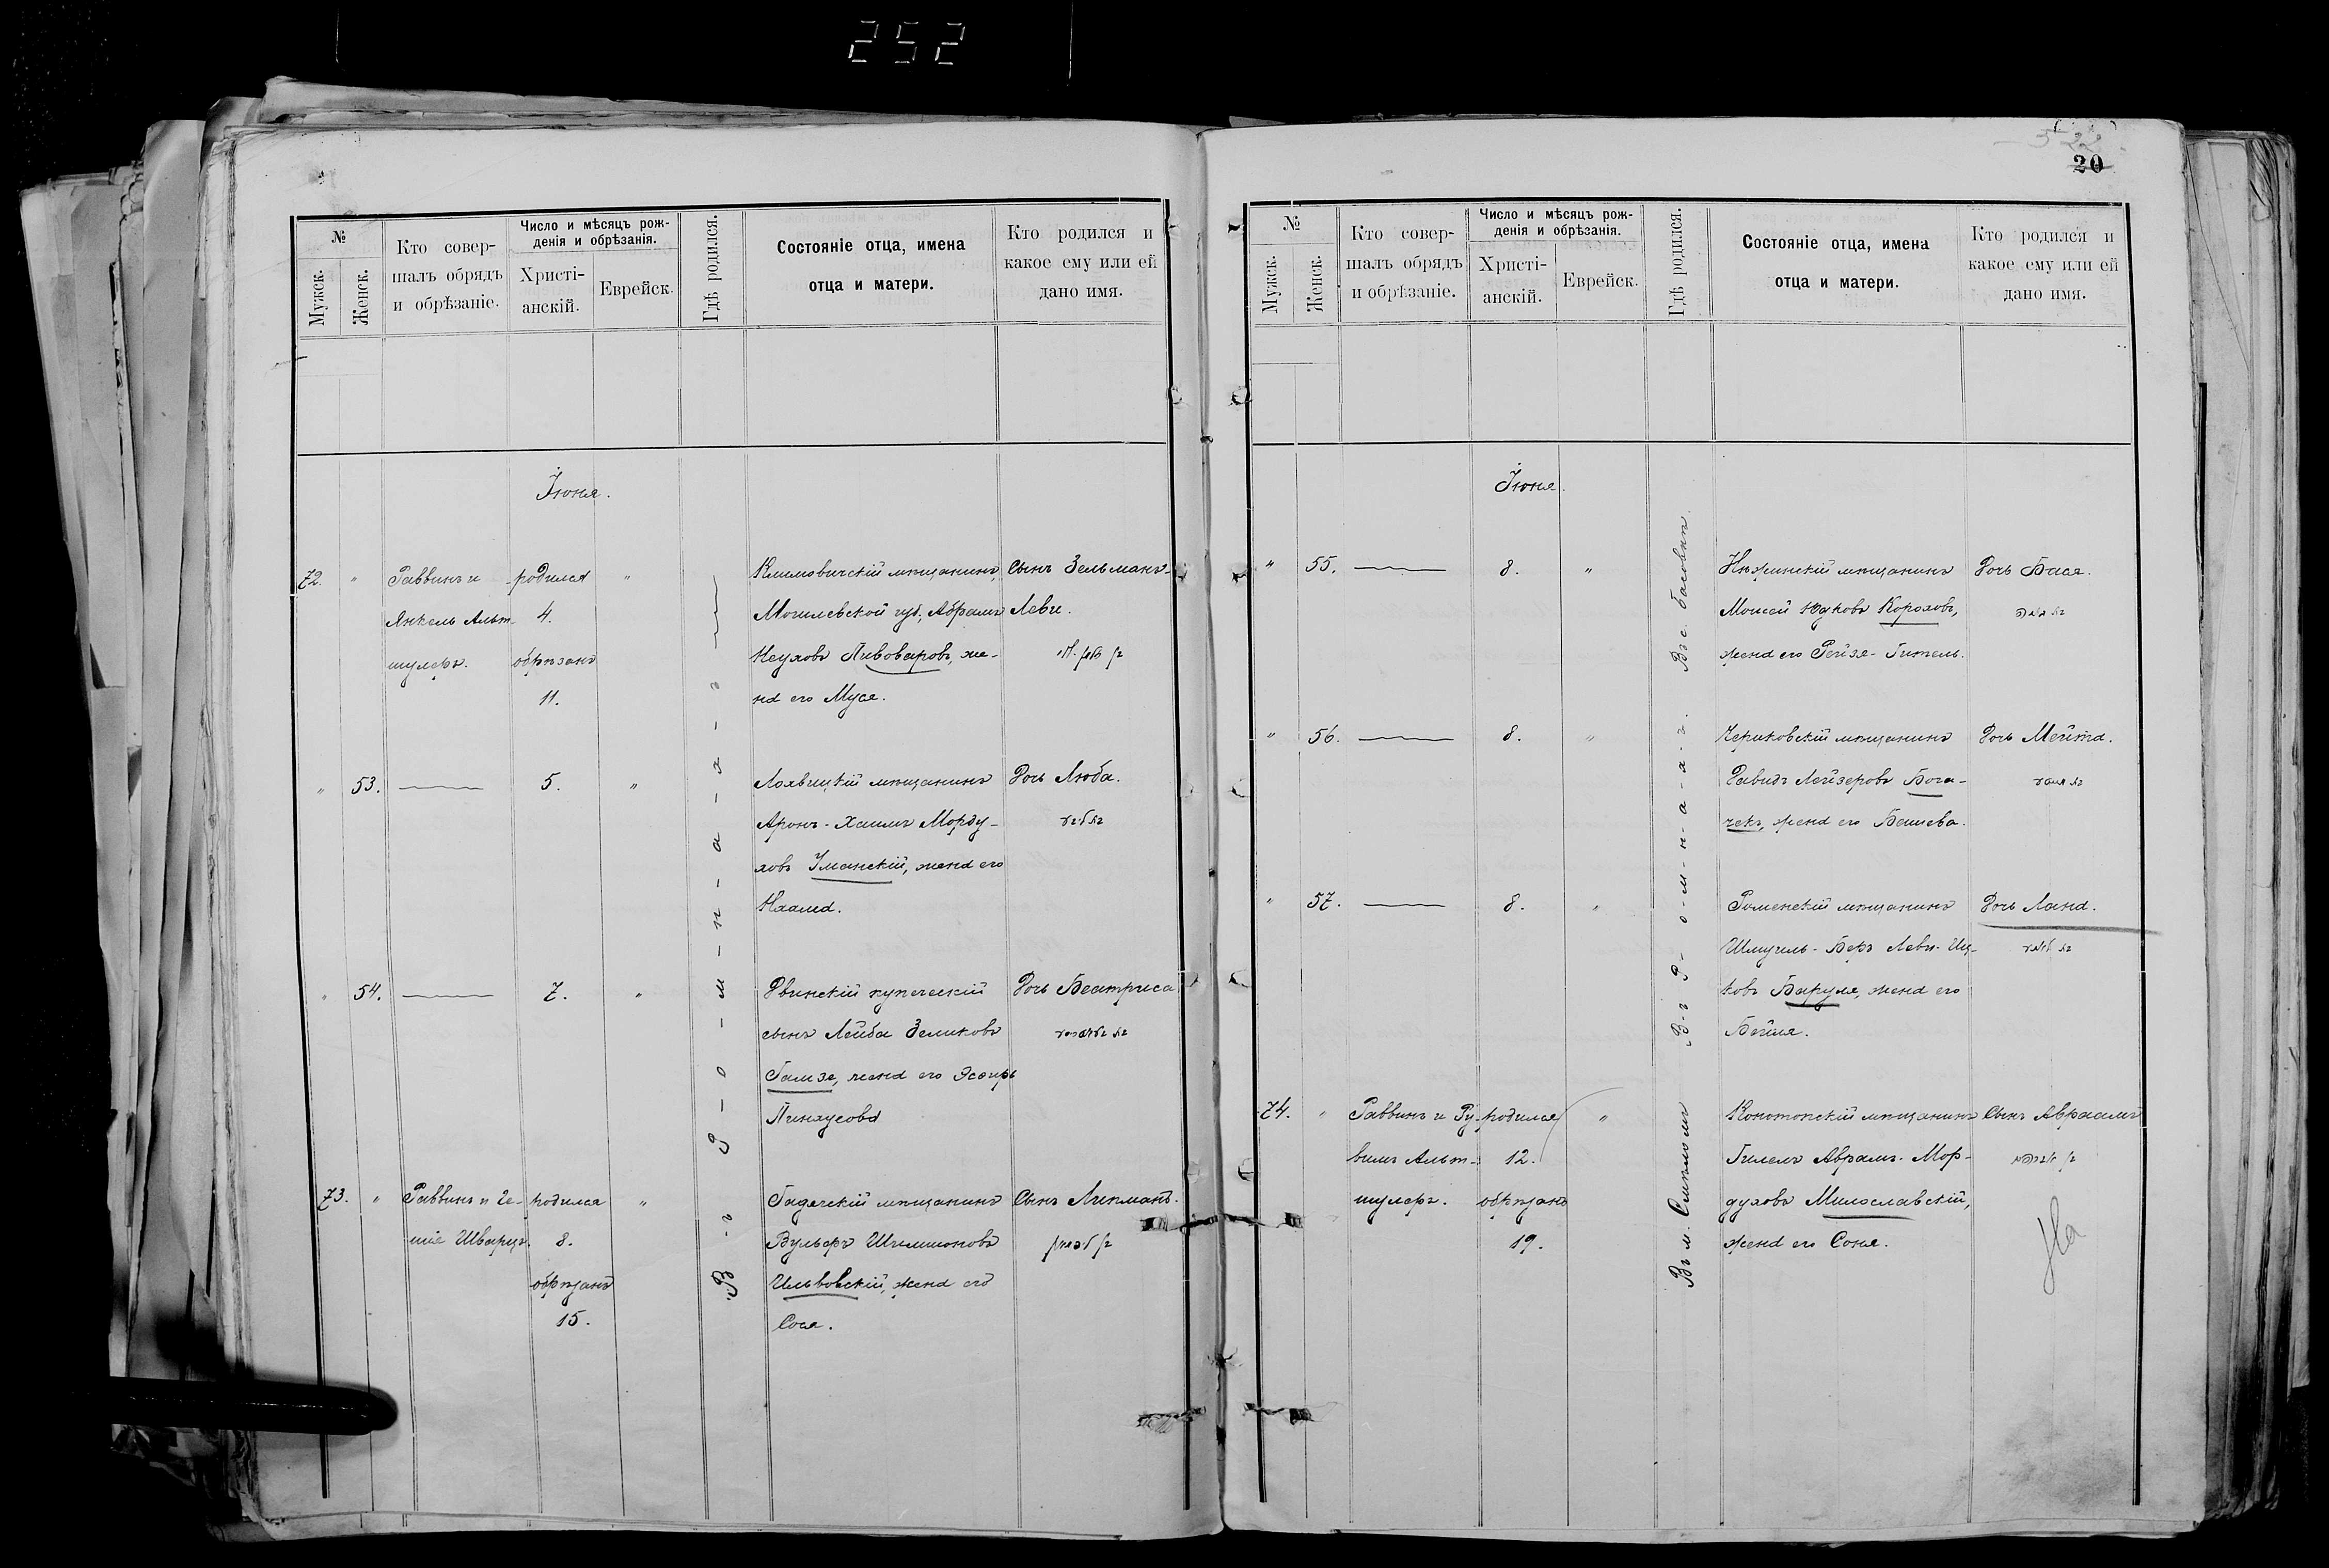 252
20
№
Мужск.
Женск.
Кто совер-
шалъ обрядъ
и обрѣзаніе.
Число и мѣсяцъ рож-
денія и обрѣзанія.
Христі-
анскій.
Еврейск.
Гдѣ родился.
Состояніе отца, имена
отца и матери.
Кто родился и
какое ему или ей
дано имя.
Іюня.
72.
"
Раввинъ и
Янкель Альт-
шулеръ.
родился
4.
обрѣзанъ
11.
"
Климовичскій мѣщанинъ,
Могилевской губ., Абрамъ
Неуховъ Пивоваровъ, же-
на его Муся.
Сынъ Зельманъ-
Леви.
"
53.
5.
"
Лохвицкій мѣщанинъ
Аронъ-ХаимъМорду-
ховъ Уманскій, жена его
Наама.
Дочь Люба.
"
54.
7.
"
Двинскій купеческій
сынъ Лейба Зеликовъ
Гамзе, жена его Эсѳирь
Пинхусова
Дочь Беатриса
73.
"
Раввинъ и
Шварцъ.
родился
8.
обрѣзанъ
15.
"
Гадячскій мѣщанинъ
Вульфъ Шлиомовъ
Ильвовскій, жена его
Сося.
Сынъ Липманъ.
Въ Ромнахъ
№
Мужск.
Женск.
Кто совер-
шалъ обрядъ
и обрѣзаніе.
Число и мѣсяцъ рож-
денія и обрѣзанія.
Христі-
анскій.
Еврейск.
Гдѣ родился.
Состояніе отца, имена
отца и матери.
Кто родился и
какое ему или ей
дано имя.
Іюня.
"
55.
8.
"
Нѣжинскій мѣщанинъ
Моисей Юдковъ Короховъ,
жена его Рейзя-Гитель.
Дочь Бася.
"
56.
8.
"
Чериковскій мѣщанинъ
Давидъ Лейзеровъ Бога-
чекъ, жена его Башева.
Дочь Мейта.
"
57.
8.
"
Роменскій мѣщанинъ
Шмуель-Беръ Леви-Иц-
ковъ Баруля, жена его
Бейля.
Дочь Лана.
Въ Ромнахъ.
74.
"
Раввинъ и Ру-
вимъ Альт-
шулеръ.
родился
12.
обрѣзанъ
19.
"
Въ м. Смѣломъ
Конотопскій мѣщанинъ
Гилель Аврамъ-Мор-
духовъ Милославскій,
жена его Соня.
Сынъ Авраамъ
На